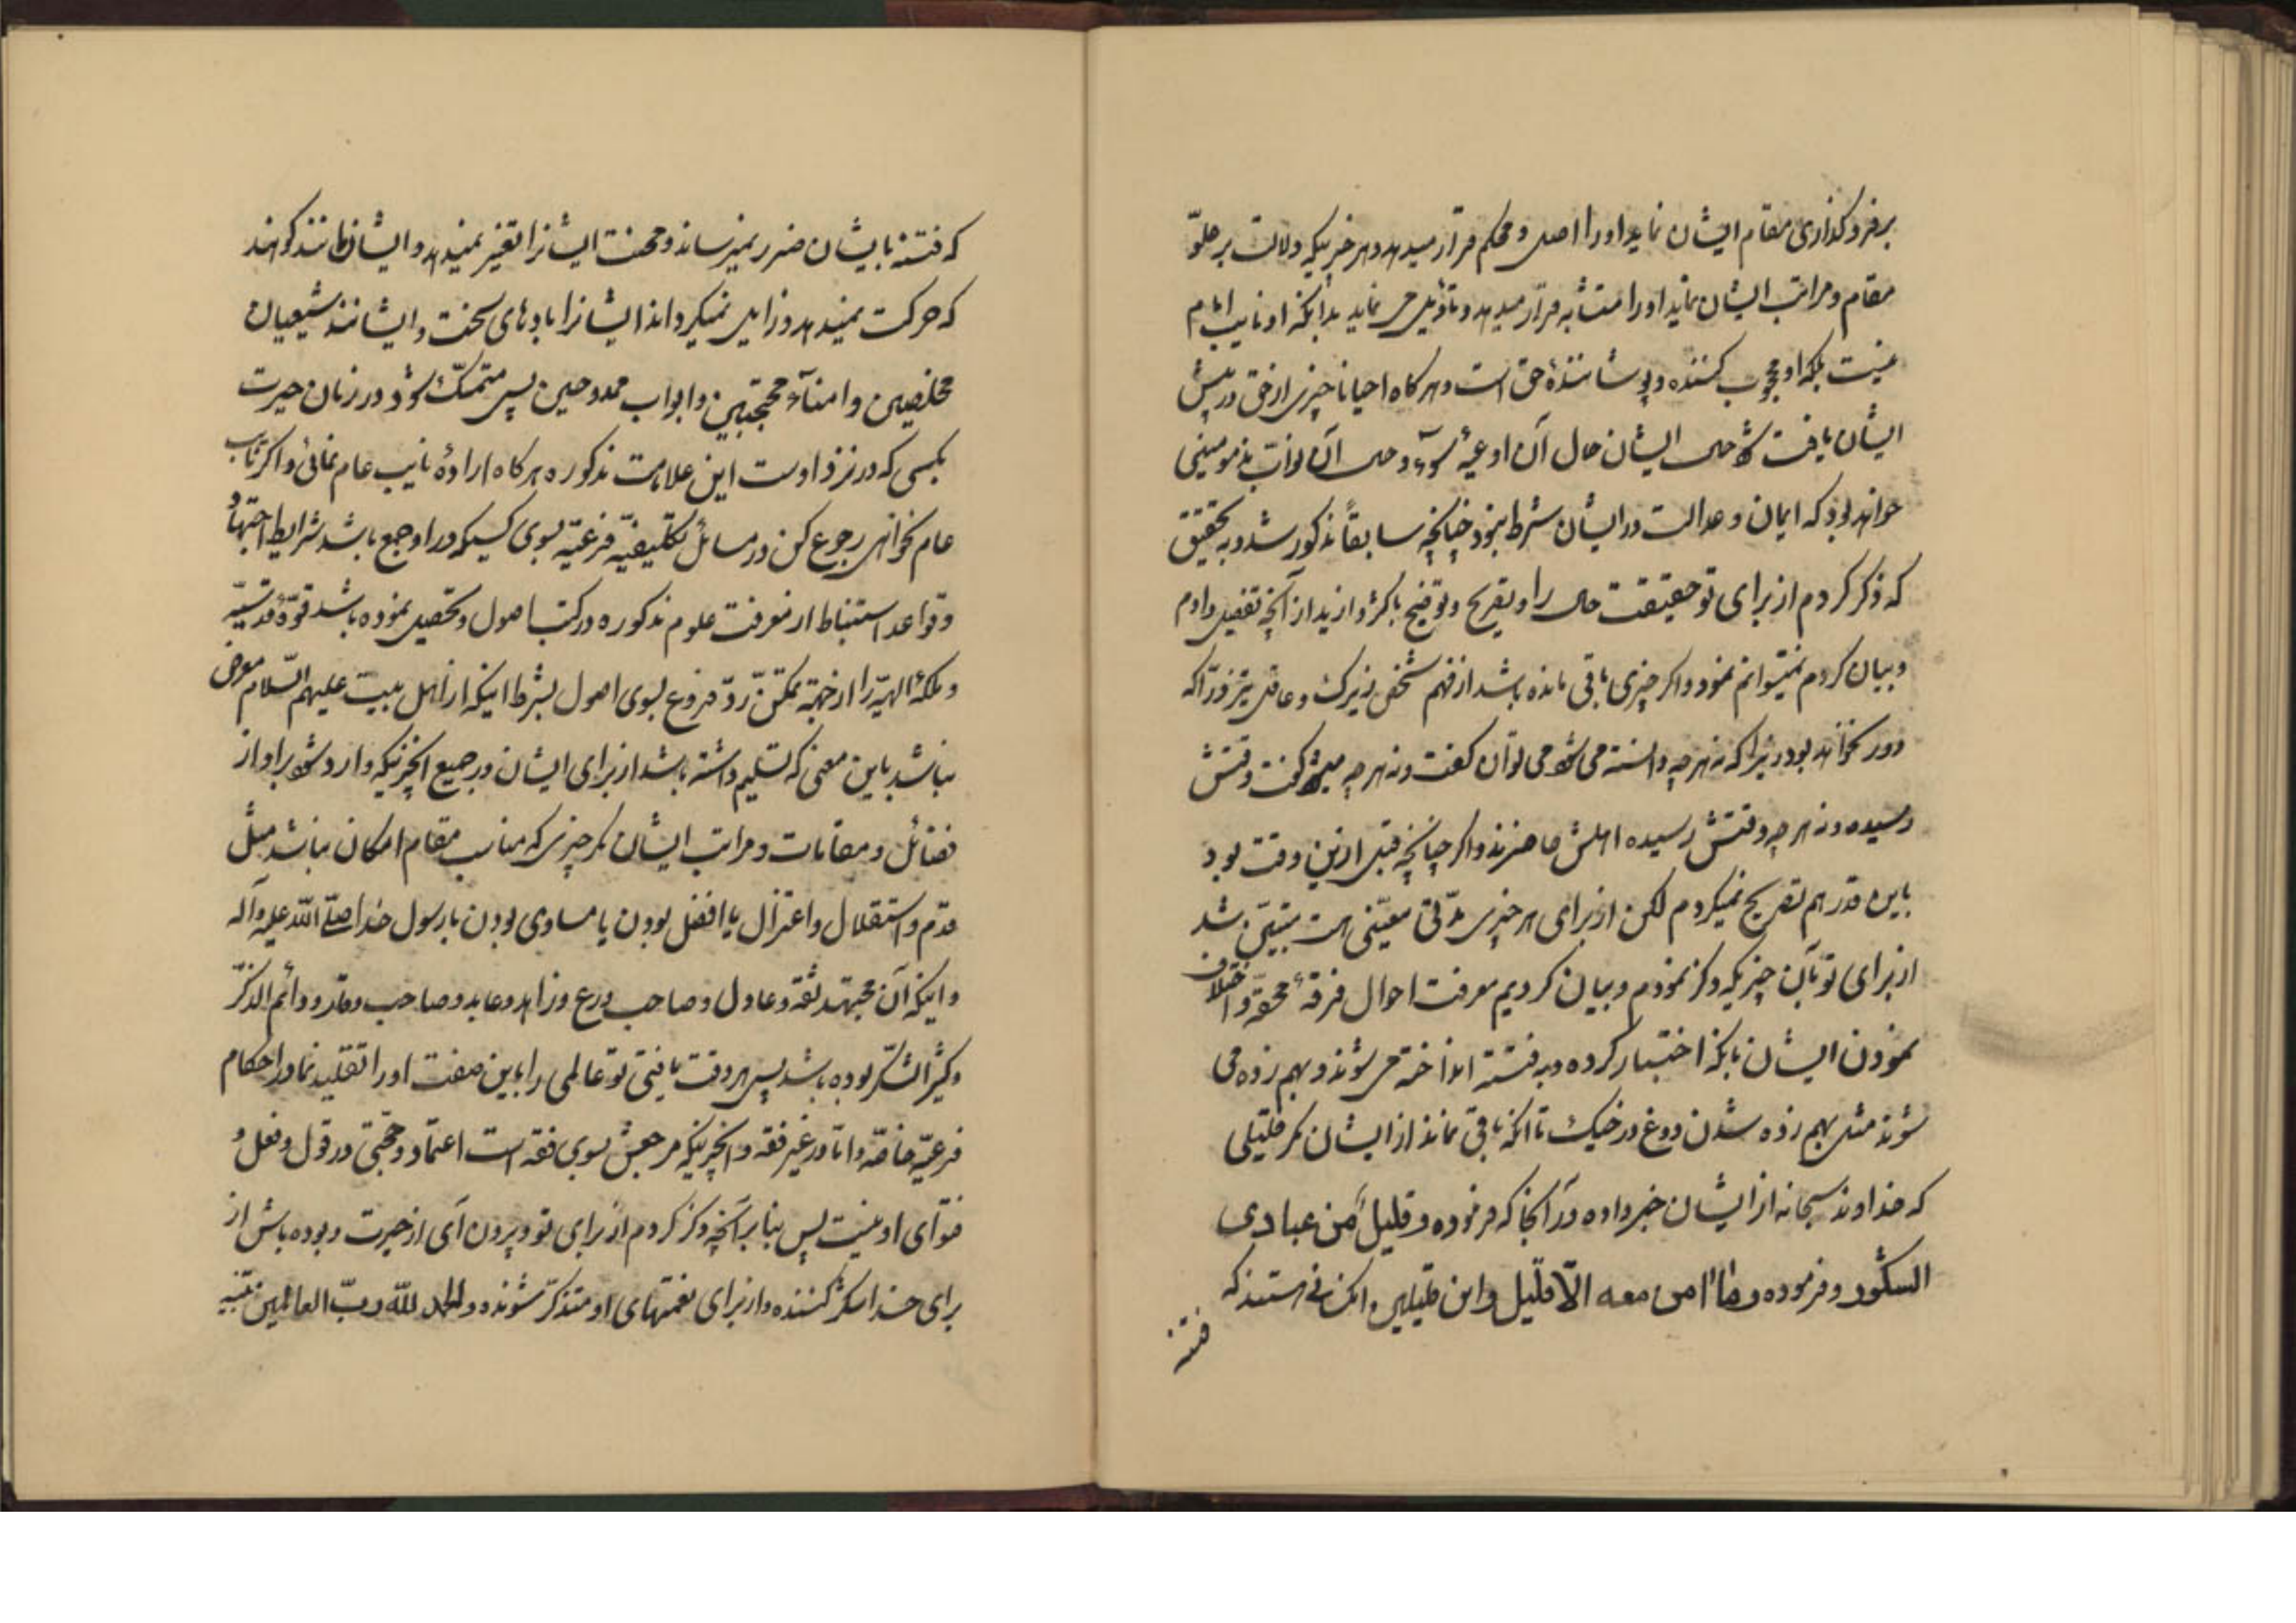 برفروکذاری مقام ایشان نماید او را اصل و محکم قرار میدهد و هر خبریکه دلالت بر علوّ
مقام و مراتب ایشان نماید او را متشابه قرار میدهد و تأویل می نماید بدانکه او نایب امام
نیست بلکه او محجوب کننده و پوشانندهٔ حق است و هرکاه احیانا چیزی از حق در پیش
ایشان یافت شود حال ایشان حال آن اوعیهٔ سوء و حال آن دوابّ مذمومینی
خواهد بود که ایمان و عدالت در ایشان شرط نبود چنانچه سابقاً مذکور شد و به تحقیق
که ذکر کردم از برای تو حقیقت حال را و تصریح و توضیح باکثر و ازید از آنچه تفصیل دادم
و بیان کردم نمیتوانم نمود و اکر چیزی باقی مانده باشد از فهم شخص زیرک و عاقل تیزفرّاکه
دور نخواهد بود زیرا که نه هر چه دانسته می شود می توان کفت و نه هر چه میشود کفت وقتش
رسیده و نه هر چه وقتش رسیده اهلش حاضرند و اکر چنانچه قبل ازین وقت بود
باین قدر هم تصریح نمیکردم لکن از برای هر چیزی مدّتی معیّنی است متبیّن شد
از برای تو بآن چیزیکه ذکر نمودم و بیان کردیم معرفت احوال فرقهٔ محقّه و اختلاف
نمودن ایشان بانکه اختبار کرده و به فتنه انداخته می شوند و بهم زده می
شوند مثل بهم زده شدن دوغ در خیک تا انکه باقی نماند از ایشان مکر قلیلی
که خداوند سبحانه از ایشان خبر داده در آنجا که فرموده و قلیل من عبادی
الشکور و فرموده و ما امن معه الّا قلیل و این قلیلین انکسانی هستند که
فتنه
که فتنه بایشان ضرر نمیرساند و محنت ایشانرا تغییر نمیدهد و ایشان مانند کوهند
که حرکت نمیدهد و زایل نمیکرداند ایشانرا بادهای سخت و ایشانند شیعیان
مخلصین و امنآء مجتبین و ابواب ممدوحین پس متمسّک شود در زمان حیرت
بکسی که در نزد اوست این علامات مذکوره هرکاه ارادهٔ نایب عام نمائی و اکر نایب
عام نخواهی رجوع کن در مسائل تکلیفیّه فرعیّه بسوی کسیکه در او جمع باشد شرایط اجتهاد
و قواعد استنباط از معرفت علوم مذکوره در کتب اصول و تحصیل نموده باشد قوّهٔ قدسیّه
و ملکهٔ الهیّه را از جهة تمکّن ردّ فروع بسوی اصول بشرط اینکه از اهل بیت علیهم السّلام معرض
نباشد باین معنی که تسلیم داشته باشد از برای ایشان در جمیع انچیزیکه وارد شود بر او از
فضائل و مقامات و مراتب ایشان مکر چیزی که مناسب مقام امکان نباشد مثل
قدم و استقلال و اعتزال یا افضل بودن یا مساوی بودن با رسول خدا صلّی الله علیه و آله
و اینکه آن مجتهد ثقه و عادل و صاحب ورع و زاهد و عابد و صاحب وقار و دائم الذکر
و کثیر الشکر بوده باشد پس هر وقت یافتی تو عالمی را باین صفت او را تقلید نما در احکام
فرعیّه خاصّه و اما در غیر فقه و انچیزیکه مرجعش بسوی فقه است اعتماد و حجّتی در قول و فعل و
فتوای او نیست پس بنا بر آنچه ذکر کردم از برای تو بیرون آی از حیرت و بوده باش از
برای خدا شکر کننده و از برای نعمتهای او متذکّر شونده و الحمد للّه ربّ العالمین تنبیه